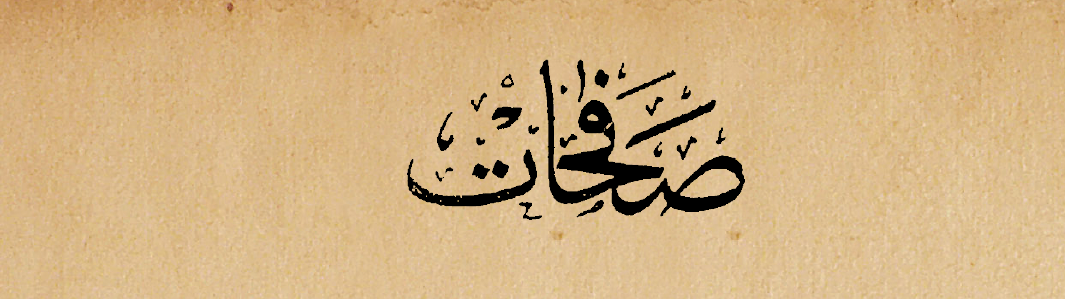 صفحات